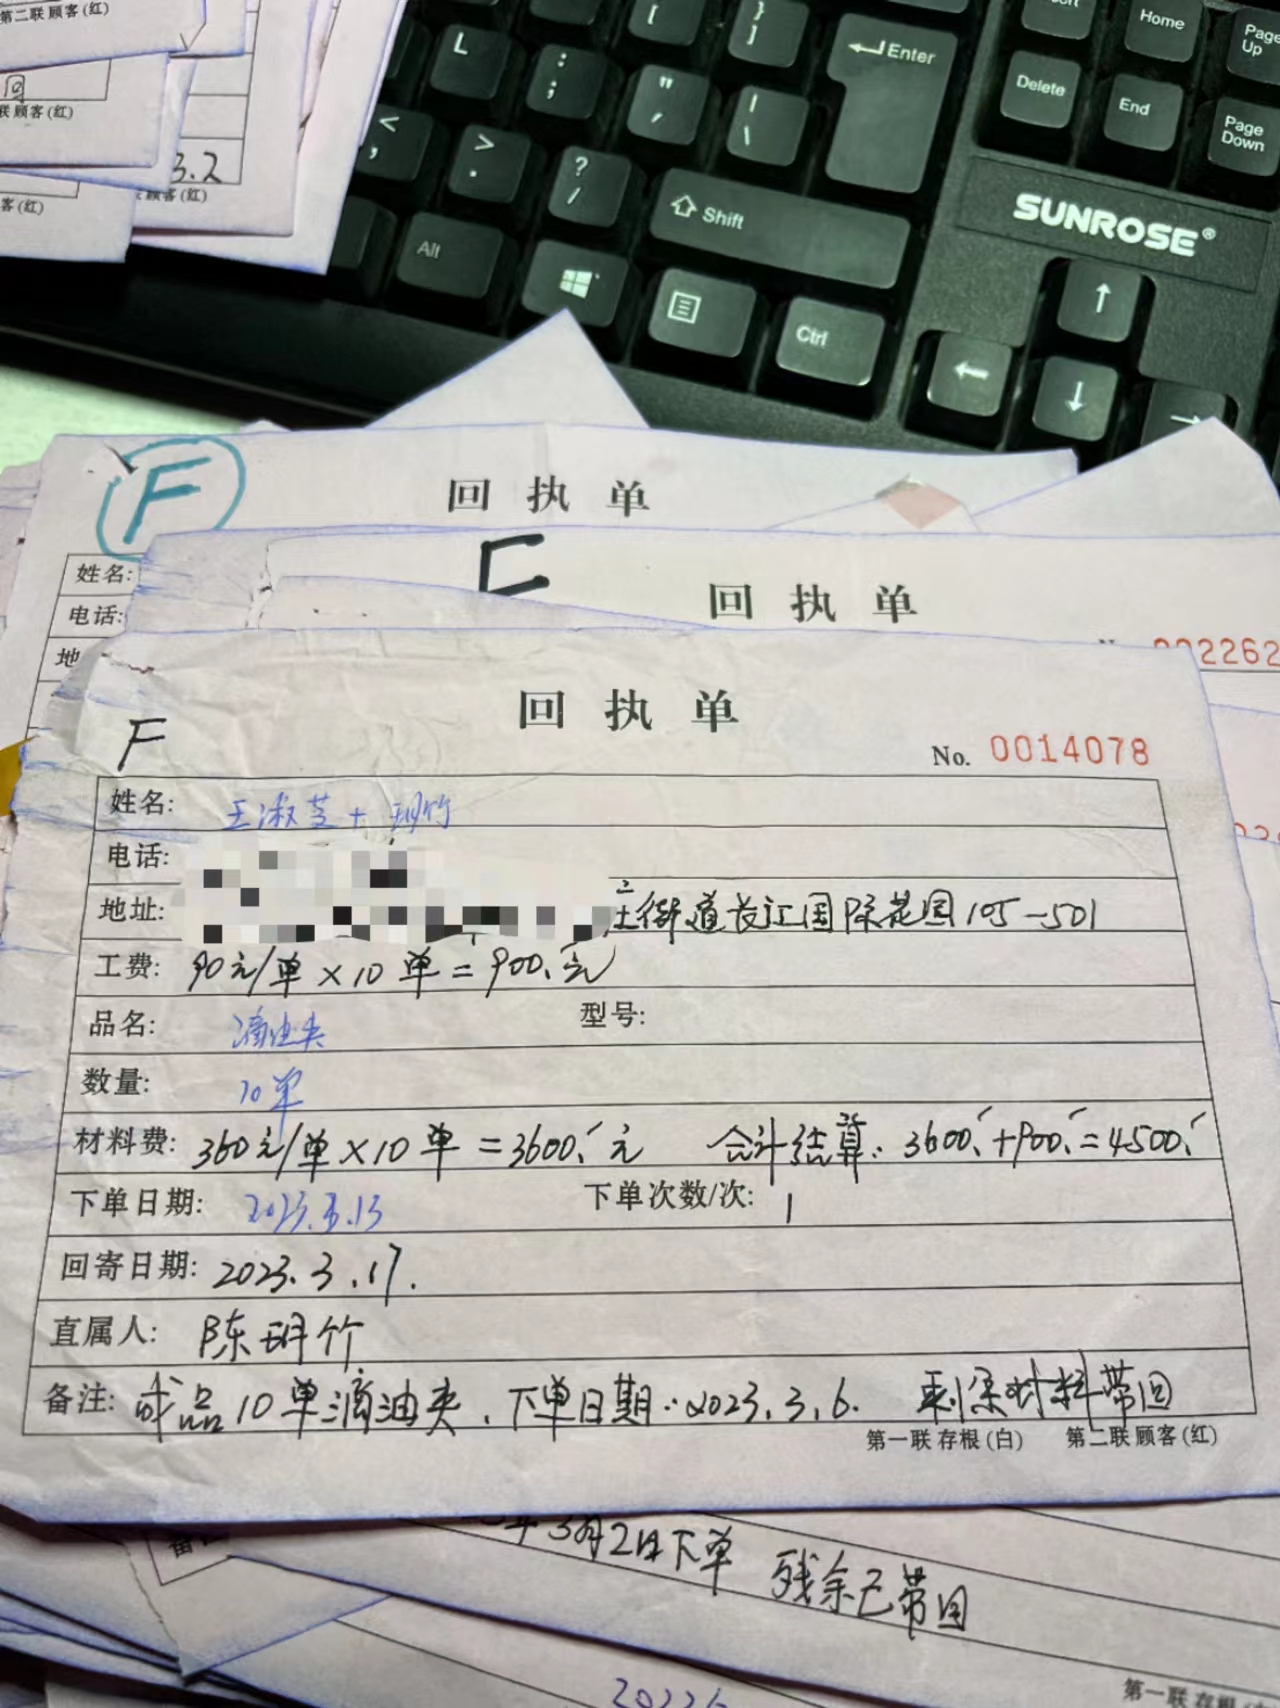 第二联 顾客(红)
回
联 顾客(红)
3.2
顾客(红)
客(红)
L
Enter
Home
Page Up
Delete
End
Page Down
Shift
SUNROSE®
Alt
Ctrl
F
回执单
姓名:
电话:
F
回执单
回执单
F
No. 0014078
姓名: 王淑芝+玥竹
电话:
地址: 庄街道长江国际花园105-501
工费: 90元/单×10单=900.元
品名: 滴油夹 型号:
数量: 10单
材料费: 360元/单×10单=3600.元 合计结算: 3600.+900.=4500.
下单日期: 2023.3.13 下单次数/次: 1
回寄日期: 2023.3.17.
直属人: 陈玥竹
备注: 成品10单滴油夹、下单日期:2023.3.6. 剩余材料带回
第一联 存根(白) 第二联 顾客(红)
3月2日下单 残余已带回